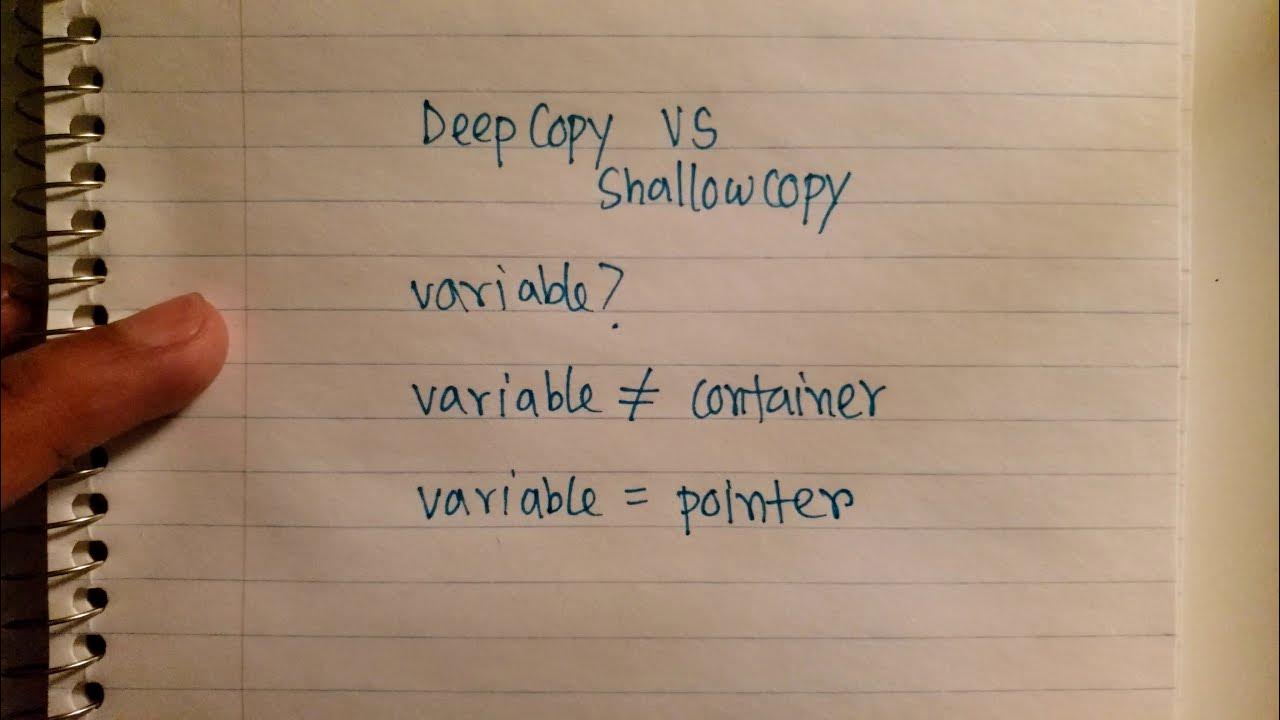 Deep Copy VS
Shallow copy
variable?
variable ≠ container
variable = pointer